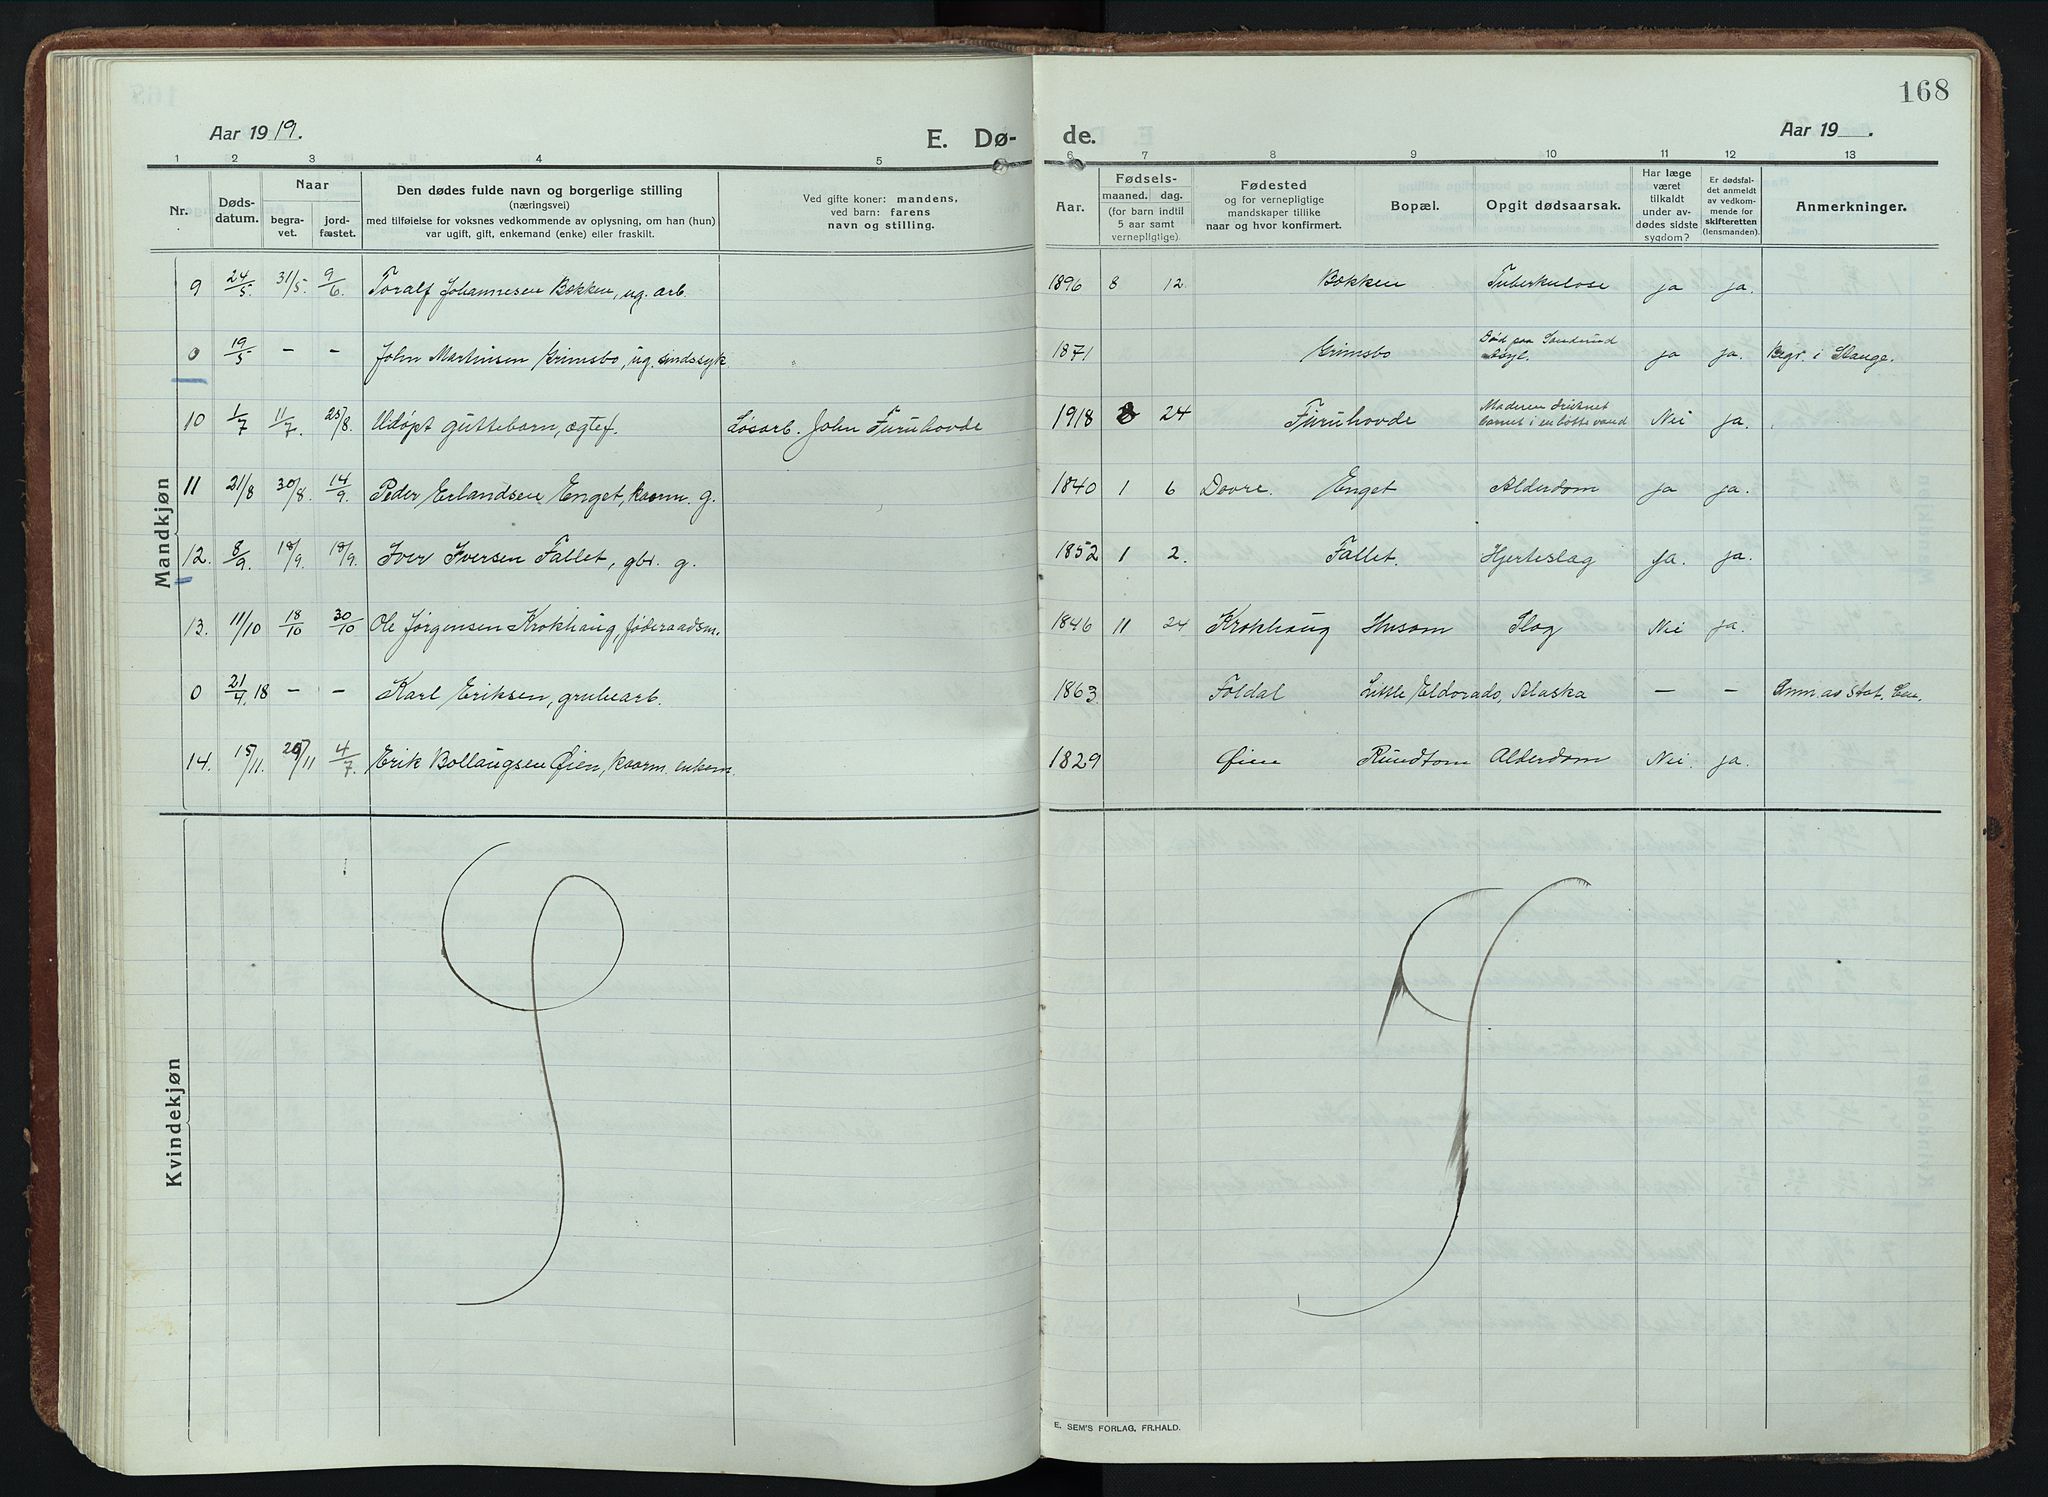 168
Aar 1919.
E. Dø-
de.
Aar 19 .
1 2 3 4 5 6 7 8 9 10 11 12 13
Nr.
Døds-
datum.
Naar
begra-
vet.
jord-
fæstet.
Den dødes fulde navn og borgerlige stilling
(næringsvei)
med tilføielse for voksnes vedkommende av oplysning, om han (hun)
var ugift, gift, enkemand (enke) eller fraskilt.
Ved gifte koner: mandens,
ved barn: farens
navn og stilling.
Aar.
Fødsels-
maaned. dag.
(for barn indtil
5 aar samt
vernepligtige).
Fødested
og for vernepligtige
mandskaper tillike
naar og hvor konfirmert.
Bopæl.
Opgit dødsaarsak.
Har læge
været
tilkaldt
under av-
dødes sidste
sygdom?
Er dødsfal-
det anmeldt
av vedkom-
mende for
skifteretten
(lensmanden).
Anmerkninger.
Mandkjøn
9 24/5. 31/5. 9/6. Toralf Johannesen Bækken, ug. arb. 1896 8 12. Bækken Tuberkulose ja ja.
0 19/5 - - John Martinsen Grimsbo, ug. sindssyk. 1871 Grimsbo Død paa Sanderud Asyl. ja ja. Begr. i Stange.
10 1/7 11/7. 25/8. Udøpt guttebarn, ægtef. Løsarb. John Furuhovde 1918 8 24 Furuhovde Moderen druknet barnet i en bøtte vand Nei ja.
11 21/8 30/8. 14/9. Peder Erlandsen Enget, kaarm. g. 1840 1 6 Dovre. Enget Alderdom ja ja.
12. 8/9. 18/9. 18/9. Iver Iversen Fallet, gbr. g. 1852 1 2. Fallet. Hjerteslag ja. ja.
13. 11/10 18/10 30/10 Ole Jørgensen Krokhaug, føderaadsm. 1846 11 24 Krokhaug Husom Slag Nei ja.
0 21/4.18 - - Karl Eriksen, grubearb. 1863. Foldal Little Eldorado, Alaska - -
14. 15/11. 20/11 4/7. Erik Bollaugsen Øien, kaarm. enkem. 1829 Øien Rundtom Alderdom Nei. ja.
Kvindekjøn
E. SEM'S FORLAG, FR.HALD.